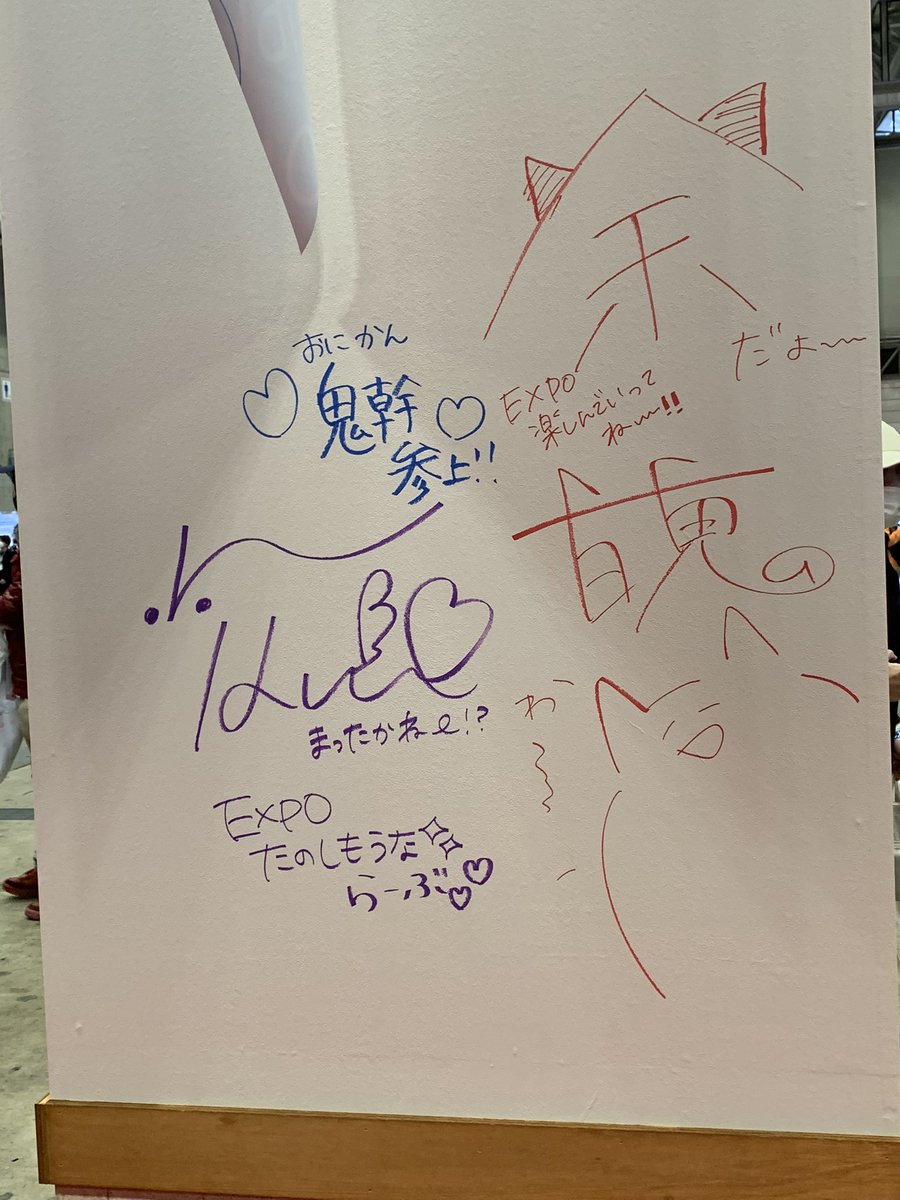 余
だよ〜
おにかん
♡鬼幹♡
参上!!
EXPO
楽しんでいって
ね〜!!
百鬼
まったかねe!?
EXPO
たのしもうな
らーぶ